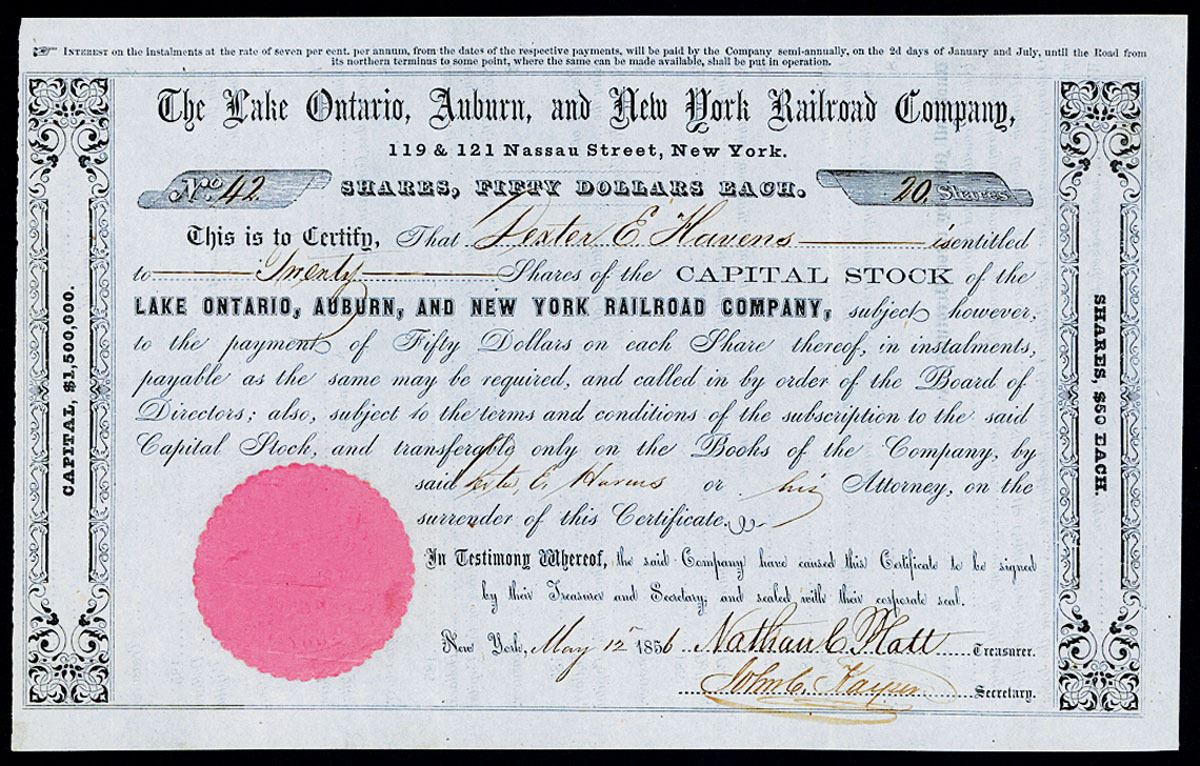 ☞ INTEREST on the instalments at the rate of seven per cent. per annum, from the dates of the respective payments, will be paid by the Company semi-annually, on the 2d days of January and July, until the Road from
its northern terminus to some point, where the same can be made available, shall be put in operation.
The Lake Ontario, Auburn, and New York Railroad Company,
119 & 121 Nassau Street, New York.
No. 42 SHARES, FIFTY DOLLARS EACH. 20 Shares
This is to Certify, That Dexter E Havens is entitled
to Twenty Shares of the CAPITAL STOCK of the
LAKE ONTARIO, AUBURN, AND NEW YORK RAILROAD COMPANY, subject however,
to the payment of Fifty Dollars on each Share thereof, in instalments,
payable as the same may be required, and called in by order of the Board of
Directors; also, subject to the terms and conditions of the subscription to the said
Capital Stock, and transferable only on the Books of the Company, by
said Dexter E. Havens or his Attorney, on the
surrender of this Certificate.
In Testimony Whereof, the said Company have caused this Certificate to be signed
by their Treasurer and Secretary, and sealed with their corporate seal.
New York, May 12 1856 Nathan C Platt Treasurer.
John C. Secretary.
CAPITAL, $1,500,000.
SHARES, $50 EACH.